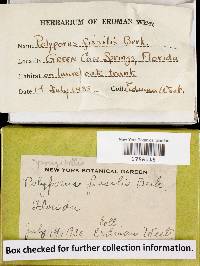 HERBARIUM OF ERDMAN WEST
Name Polyporus fissilis Berk.
Locality Green Cove Springs, Florida
Habitat on laurel oak trunk
Date 14 July 1935 Coll. Erdman West
New York Botanical Garden
NEW YORK BOTANICAL GARDEN
Polyporus fissilis Berk
Florida
Coll
July 14, 1935 Erdman West
Box checked for further collection information.